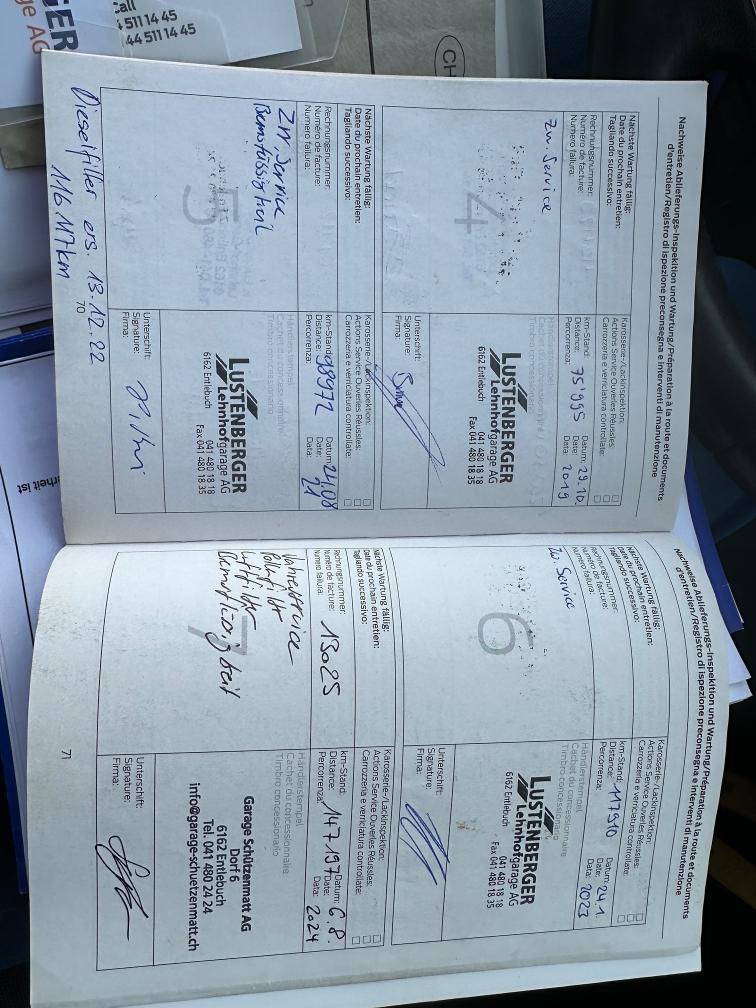 Call
4 511 14 45
44 511 14 45
CH
Nachweise Ablieferungs-Inspektion und Wartung/Préparation à la route et documents
d'entretien/Registro di ispezione preconsegna e interventi di manutenzione
Nächste Wartung fällig:
Date du prochain entretien:
Tagliando successivo:
Karosserie-/Lackinspektion:
Actions Service Ouvertes Réussies:
Carrozzeria e verniciatura controllate:
Rechnungsnummer:
Numéro de facture:
Numero fattura:
km-Stand:
Distance:
Percorrenza:
75'995
Datum:
Date:
Data:
29.10.
2019
Zw. Service
4
LUSTENBERGER
Lehnhofgarage AG
6162 Entlebuch
041 480 18 18
Fax 041 480 18 35
Unterschift:
Signature:
Firma:
Nächste Wartung fällig:
Date du prochain entretien:
Tagliando successivo:
Karosserie-/Lackinspektion:
Actions Service Ouvertes Réussies:
Carrozzeria e verniciatura controllate:
Rechnungsnummer:
Numéro de facture:
Numero fattura:
km-Stand:
Distance:
Percorrenza:
98972
Datum:
Date:
Data:
24.08
21
Service
Bremsflüssigkeit
5
LUSTENBERGER
Lehnhofgarage AG
6162 Entlebuch
041 480 18 18
Fax 041 480 18 35
Unterschift:
Signature:
Firma:
Dieselfilter ers. 13.12.22
116 117km
70
Nachweise Ablieferungs-Inspektion und Wartung/Préparation à la route et documents
d'entretien/Registro di ispezione preconsegna e interventi di manutenzione
Nächste Wartung fällig:
Date du prochain entretien:
Tagliando successivo:
Karosserie-/Lackinspektion:
Actions Service Ouvertes Réussies:
Carrozzeria e verniciatura controllate:
Rechnungsnummer:
Numéro de facture:
Numero fattura:
km-Stand:
Distance:
Percorrenza:
117910
Datum:
Date:
Data:
24.1.
2023
Zw. Service
6
Händlerstempel
Cachet du concessionnaire
Timbro concessionario
LUSTENBERGER
Lehnhofgarage AG
6162 Entlebuch
041 480 18 18
Fax 041 480 18 35
Unterschift:
Signature:
Firma:
Nächste Wartung fällig:
Date du prochain entretien:
Tagliando successivo:
Karosserie-/Lackinspektion:
Actions Service Ouvertes Réussies:
Carrozzeria e verniciatura controllate:
Rechnungsnummer:
Numéro de facture:
Numero fattura:
13025
km-Stand:
Distance:
Percorrenza:
147 197
Datum:
Date:
Data:
6.8.
2024
Jahresservice
Pollenfilter
Luftfilter
Bremsflüssigkeit
7
Händlerstempel
Cachet du concessionnaire
Timbro concessionario
Garage Schützenmatt AG
Dorf 6
6162 Entlebuch
Tel. 041 480 24 24
info@garage-schuetzenmatt.ch
Unterschift:
Signature:
Firma:
71